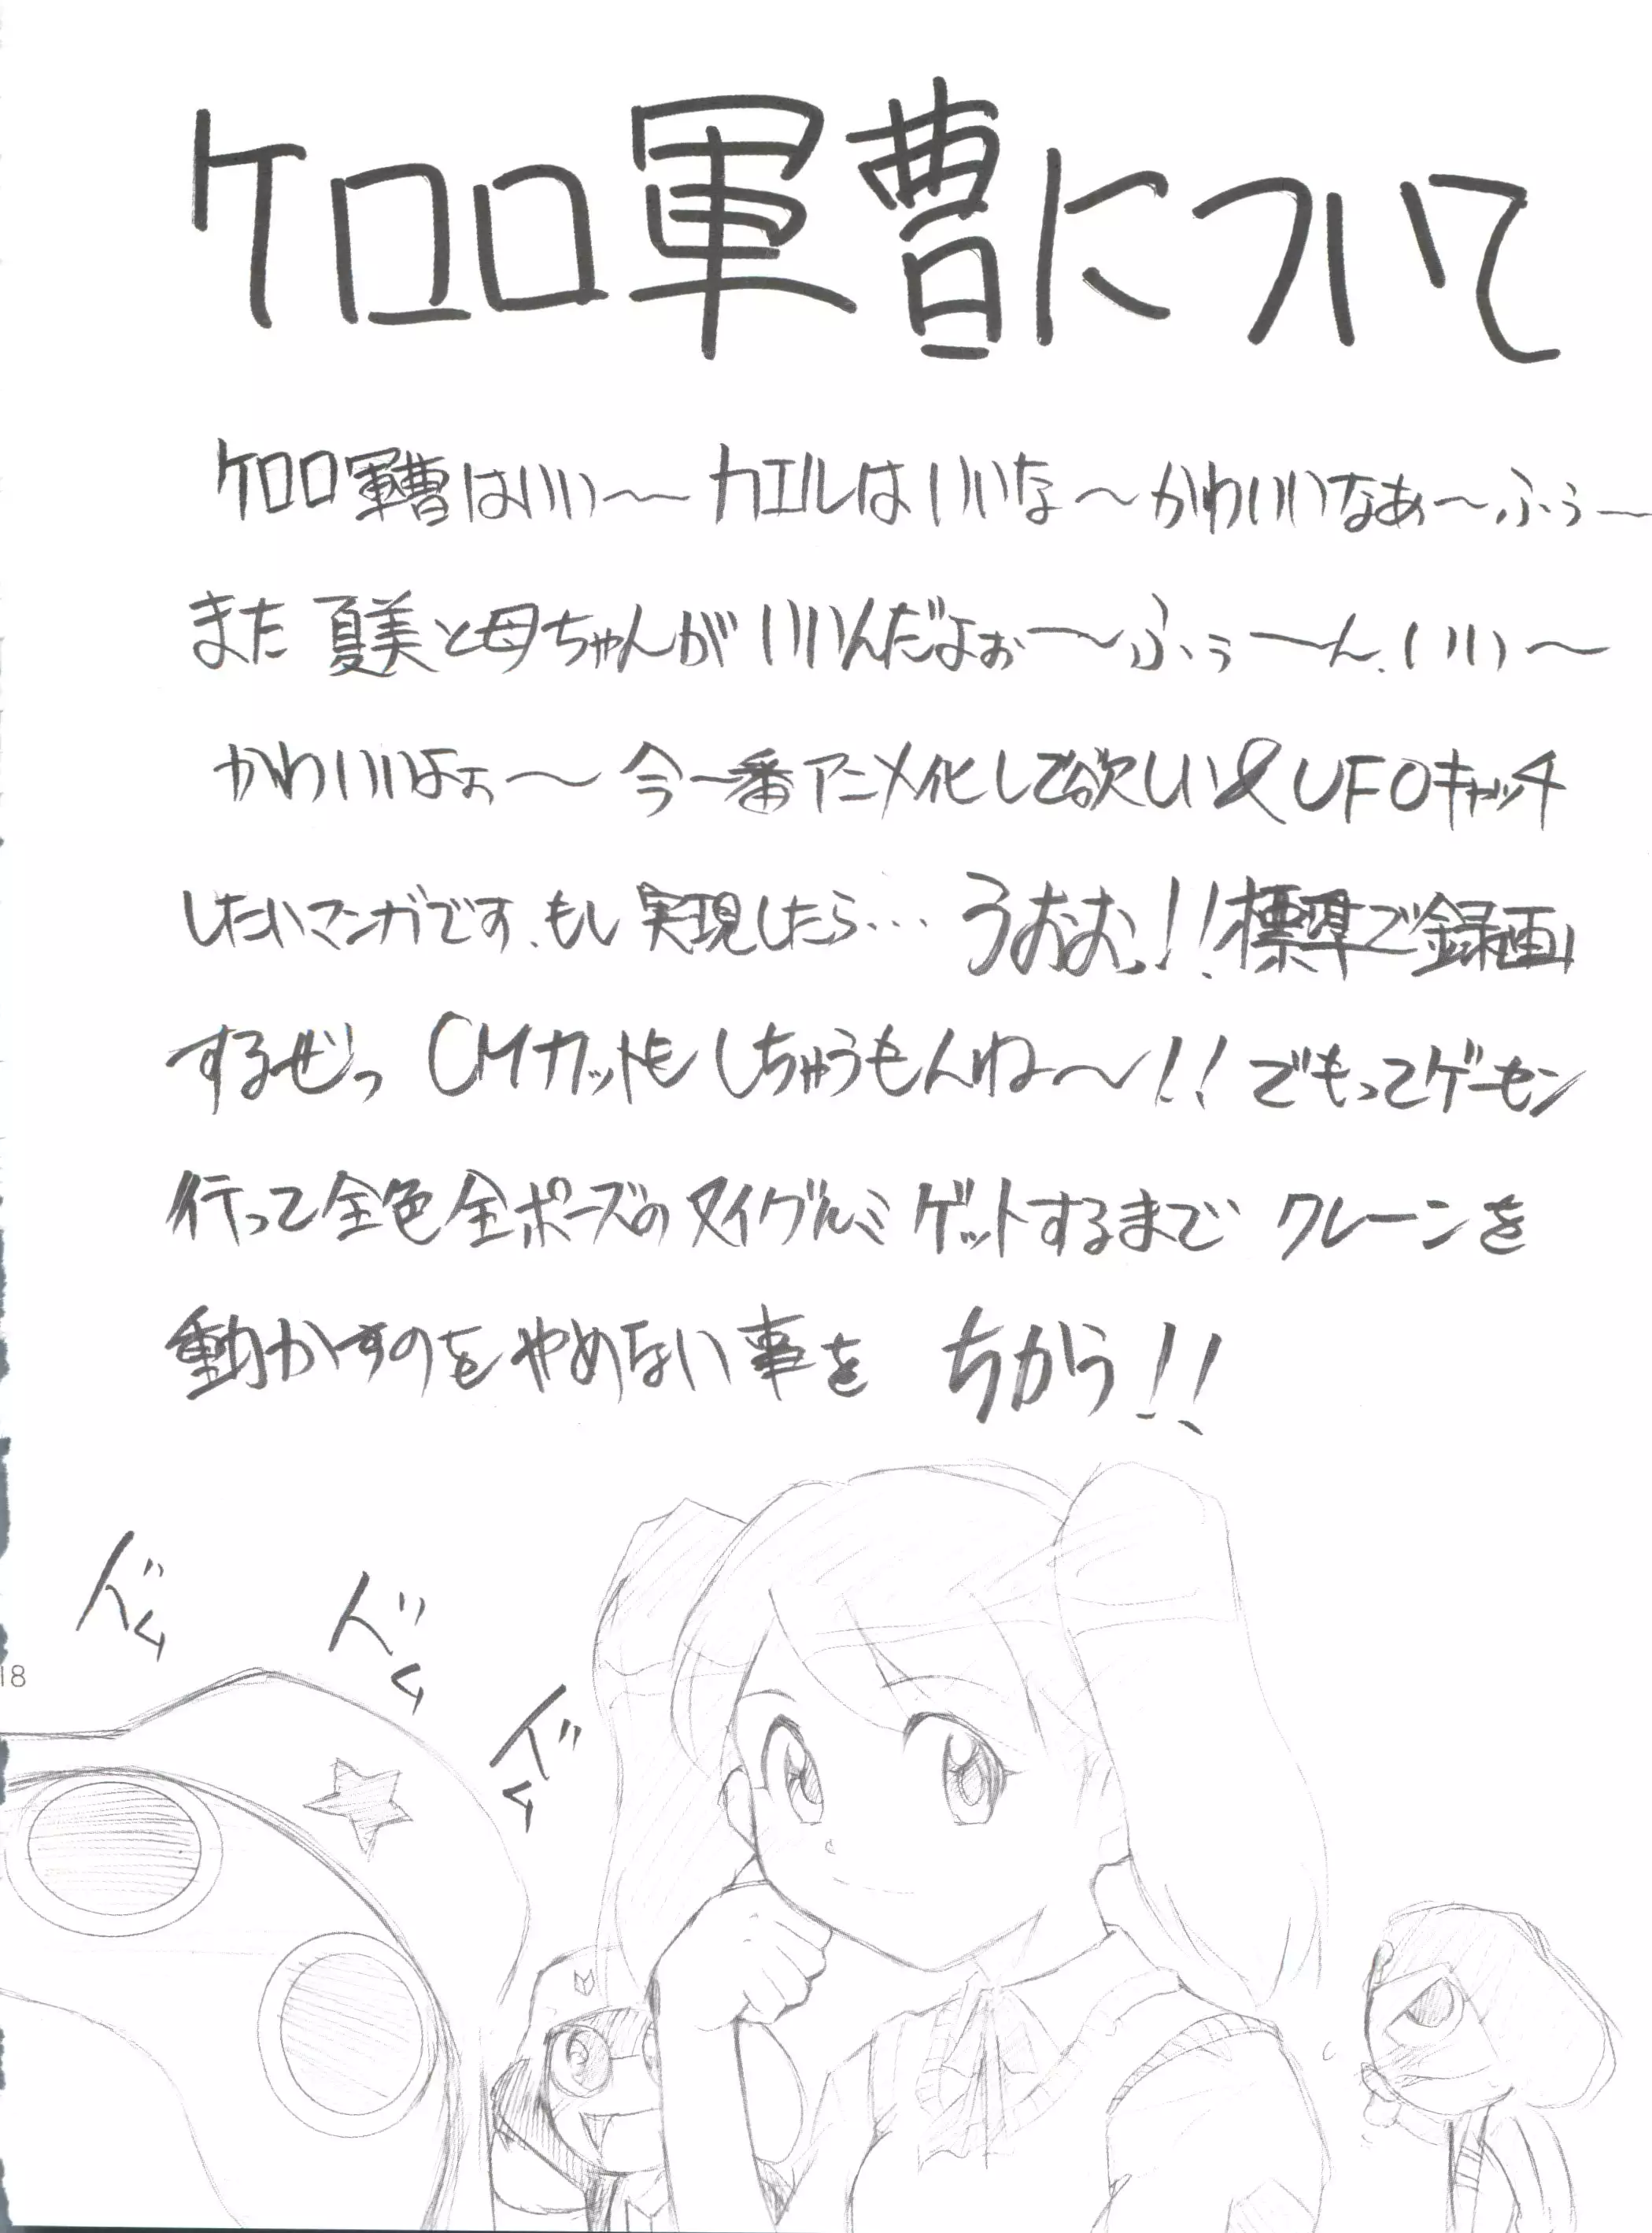 ケロロ軍曹について
ケロロ軍曹はいい〜カエルはいいな〜かわいいなあ〜ふぅ〜
また夏美と母ちゃんがいいんだよぉ〜ふぅ〜ん、いい〜
かわいいよぉ〜今一番アニメ化して欲しい&UFOキャッチ
したいマンガです、もし実現したら…うおおっ!!標準で録画
するぜっ CMカットもしちゃうもんね〜!!でもってゲーセン
行って全色全ポーズのヌイグルミゲットするまでクレーンを
動かすのをやめない事をちかう!!
ドド
ドド
ドド
18